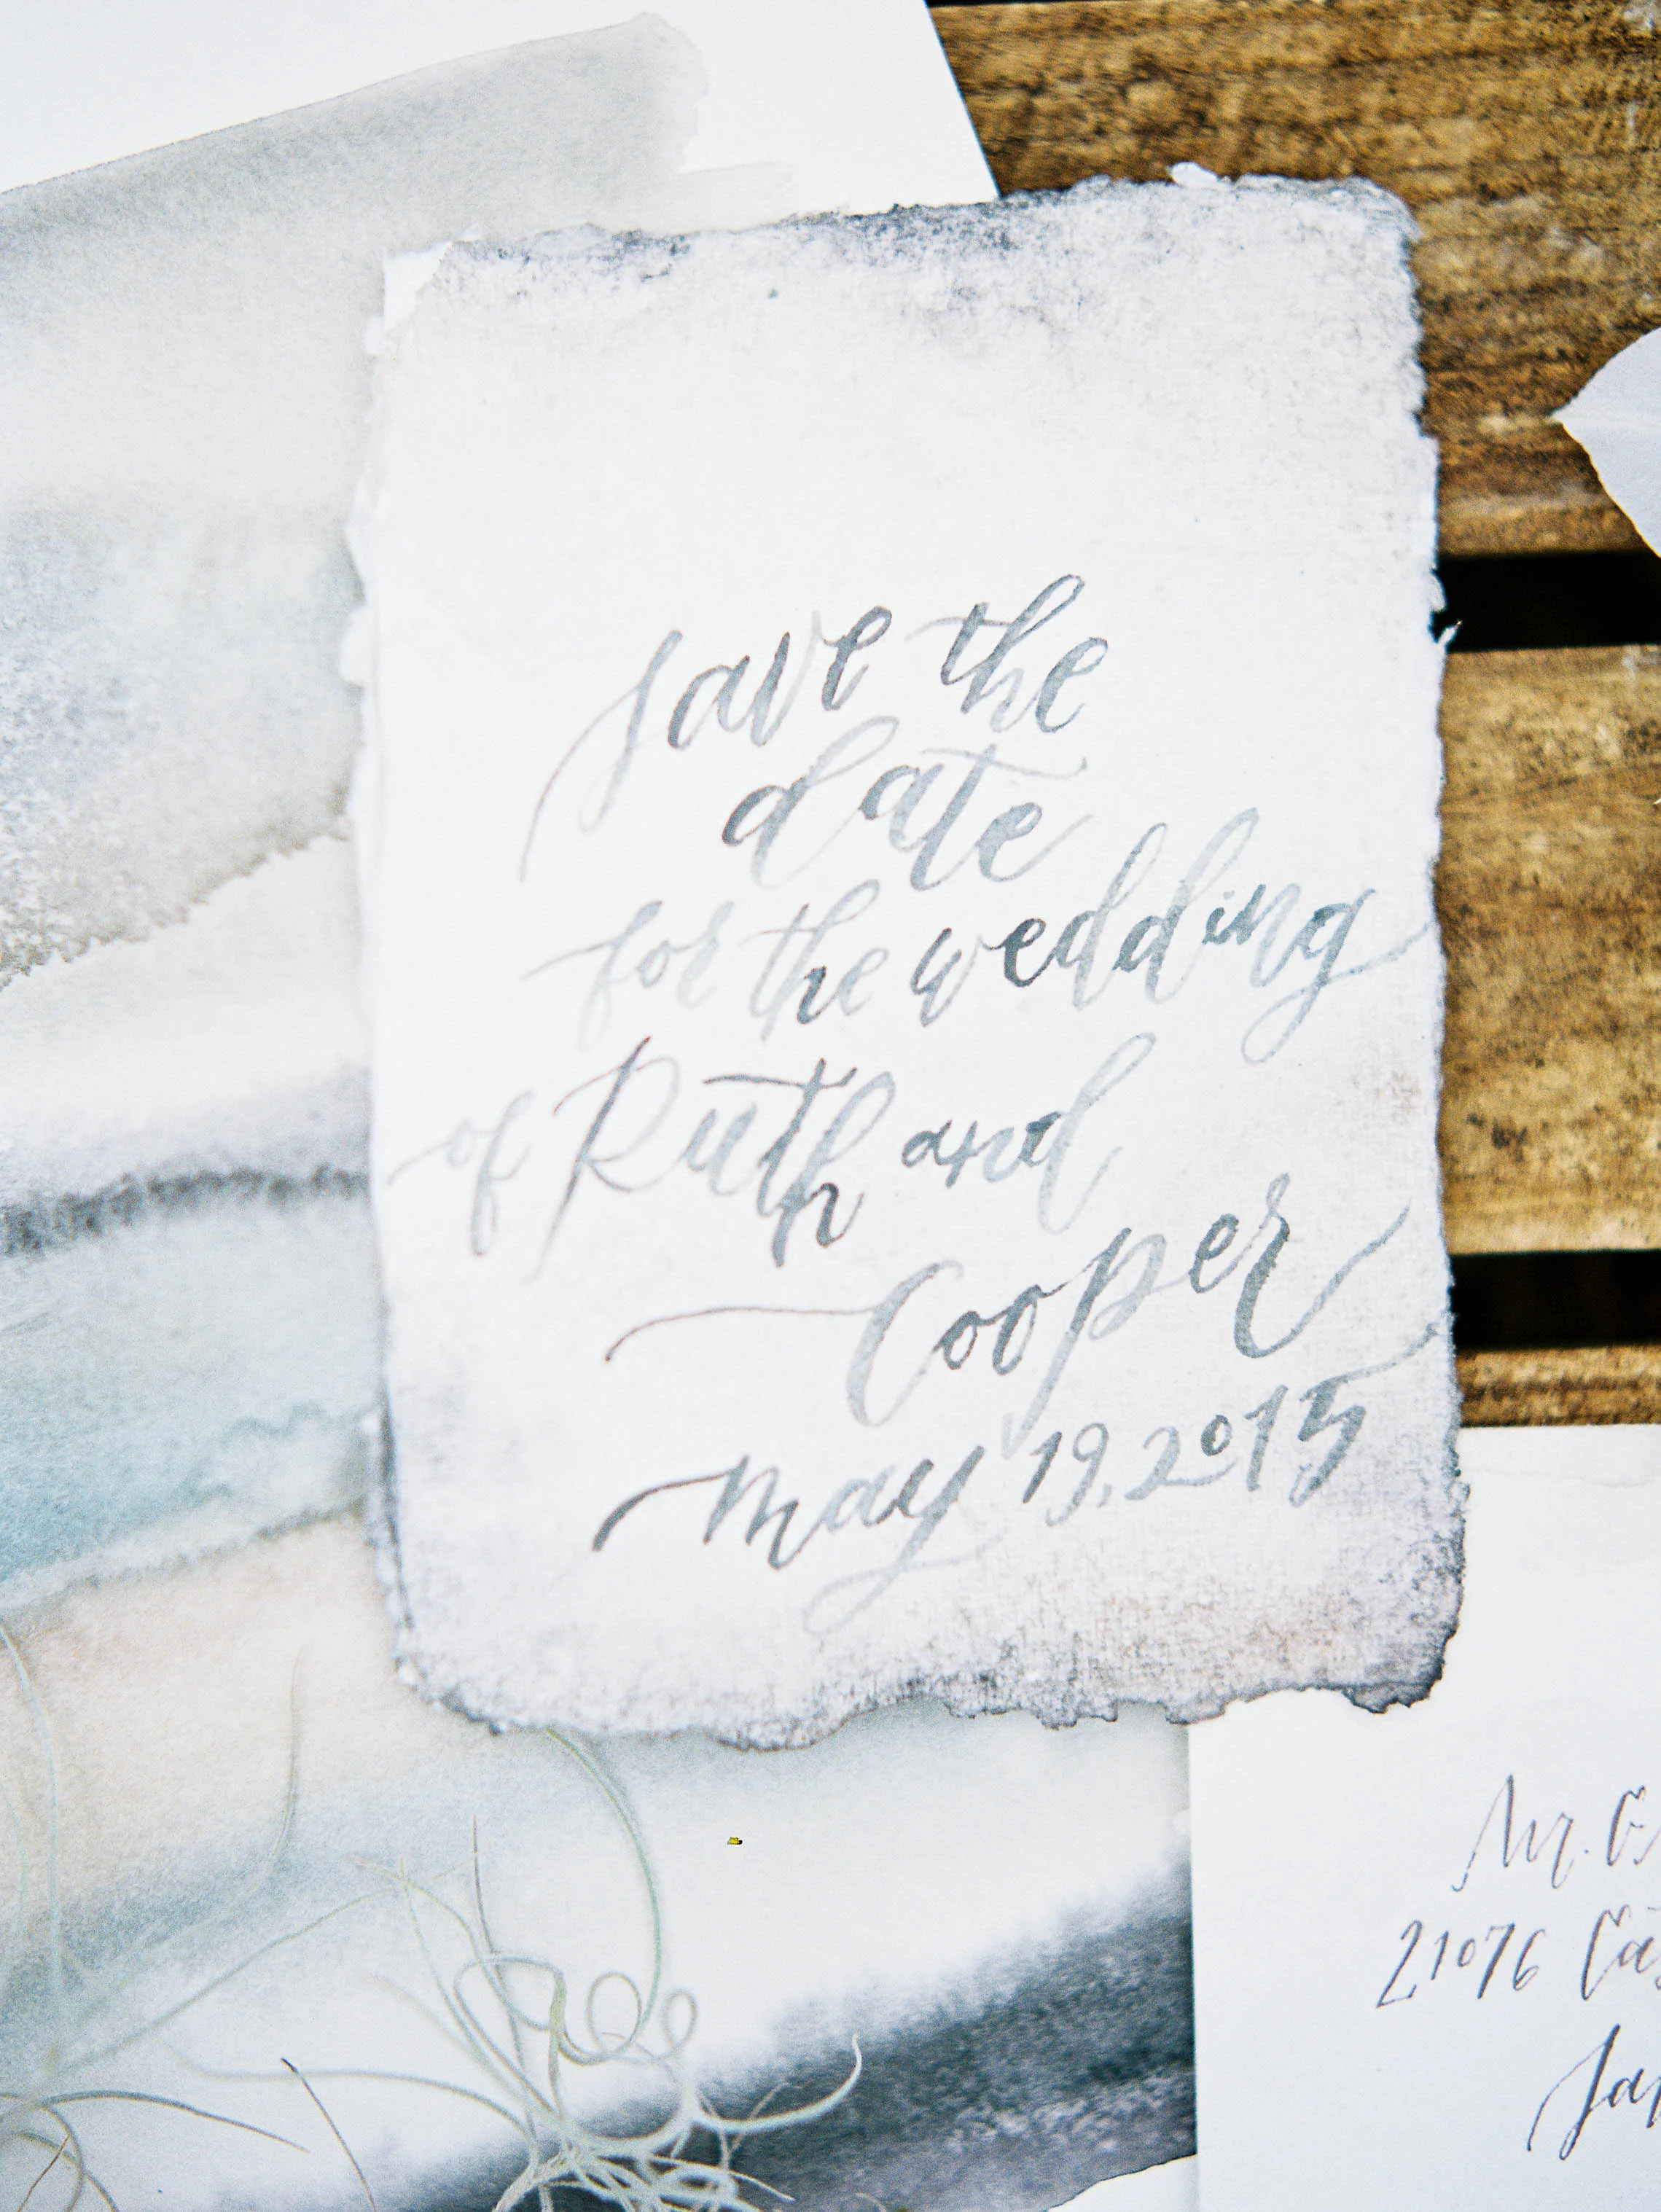 save the
date
for the wedding
of Ruth and
Cooper
may 19, 2015
Mr.
21076